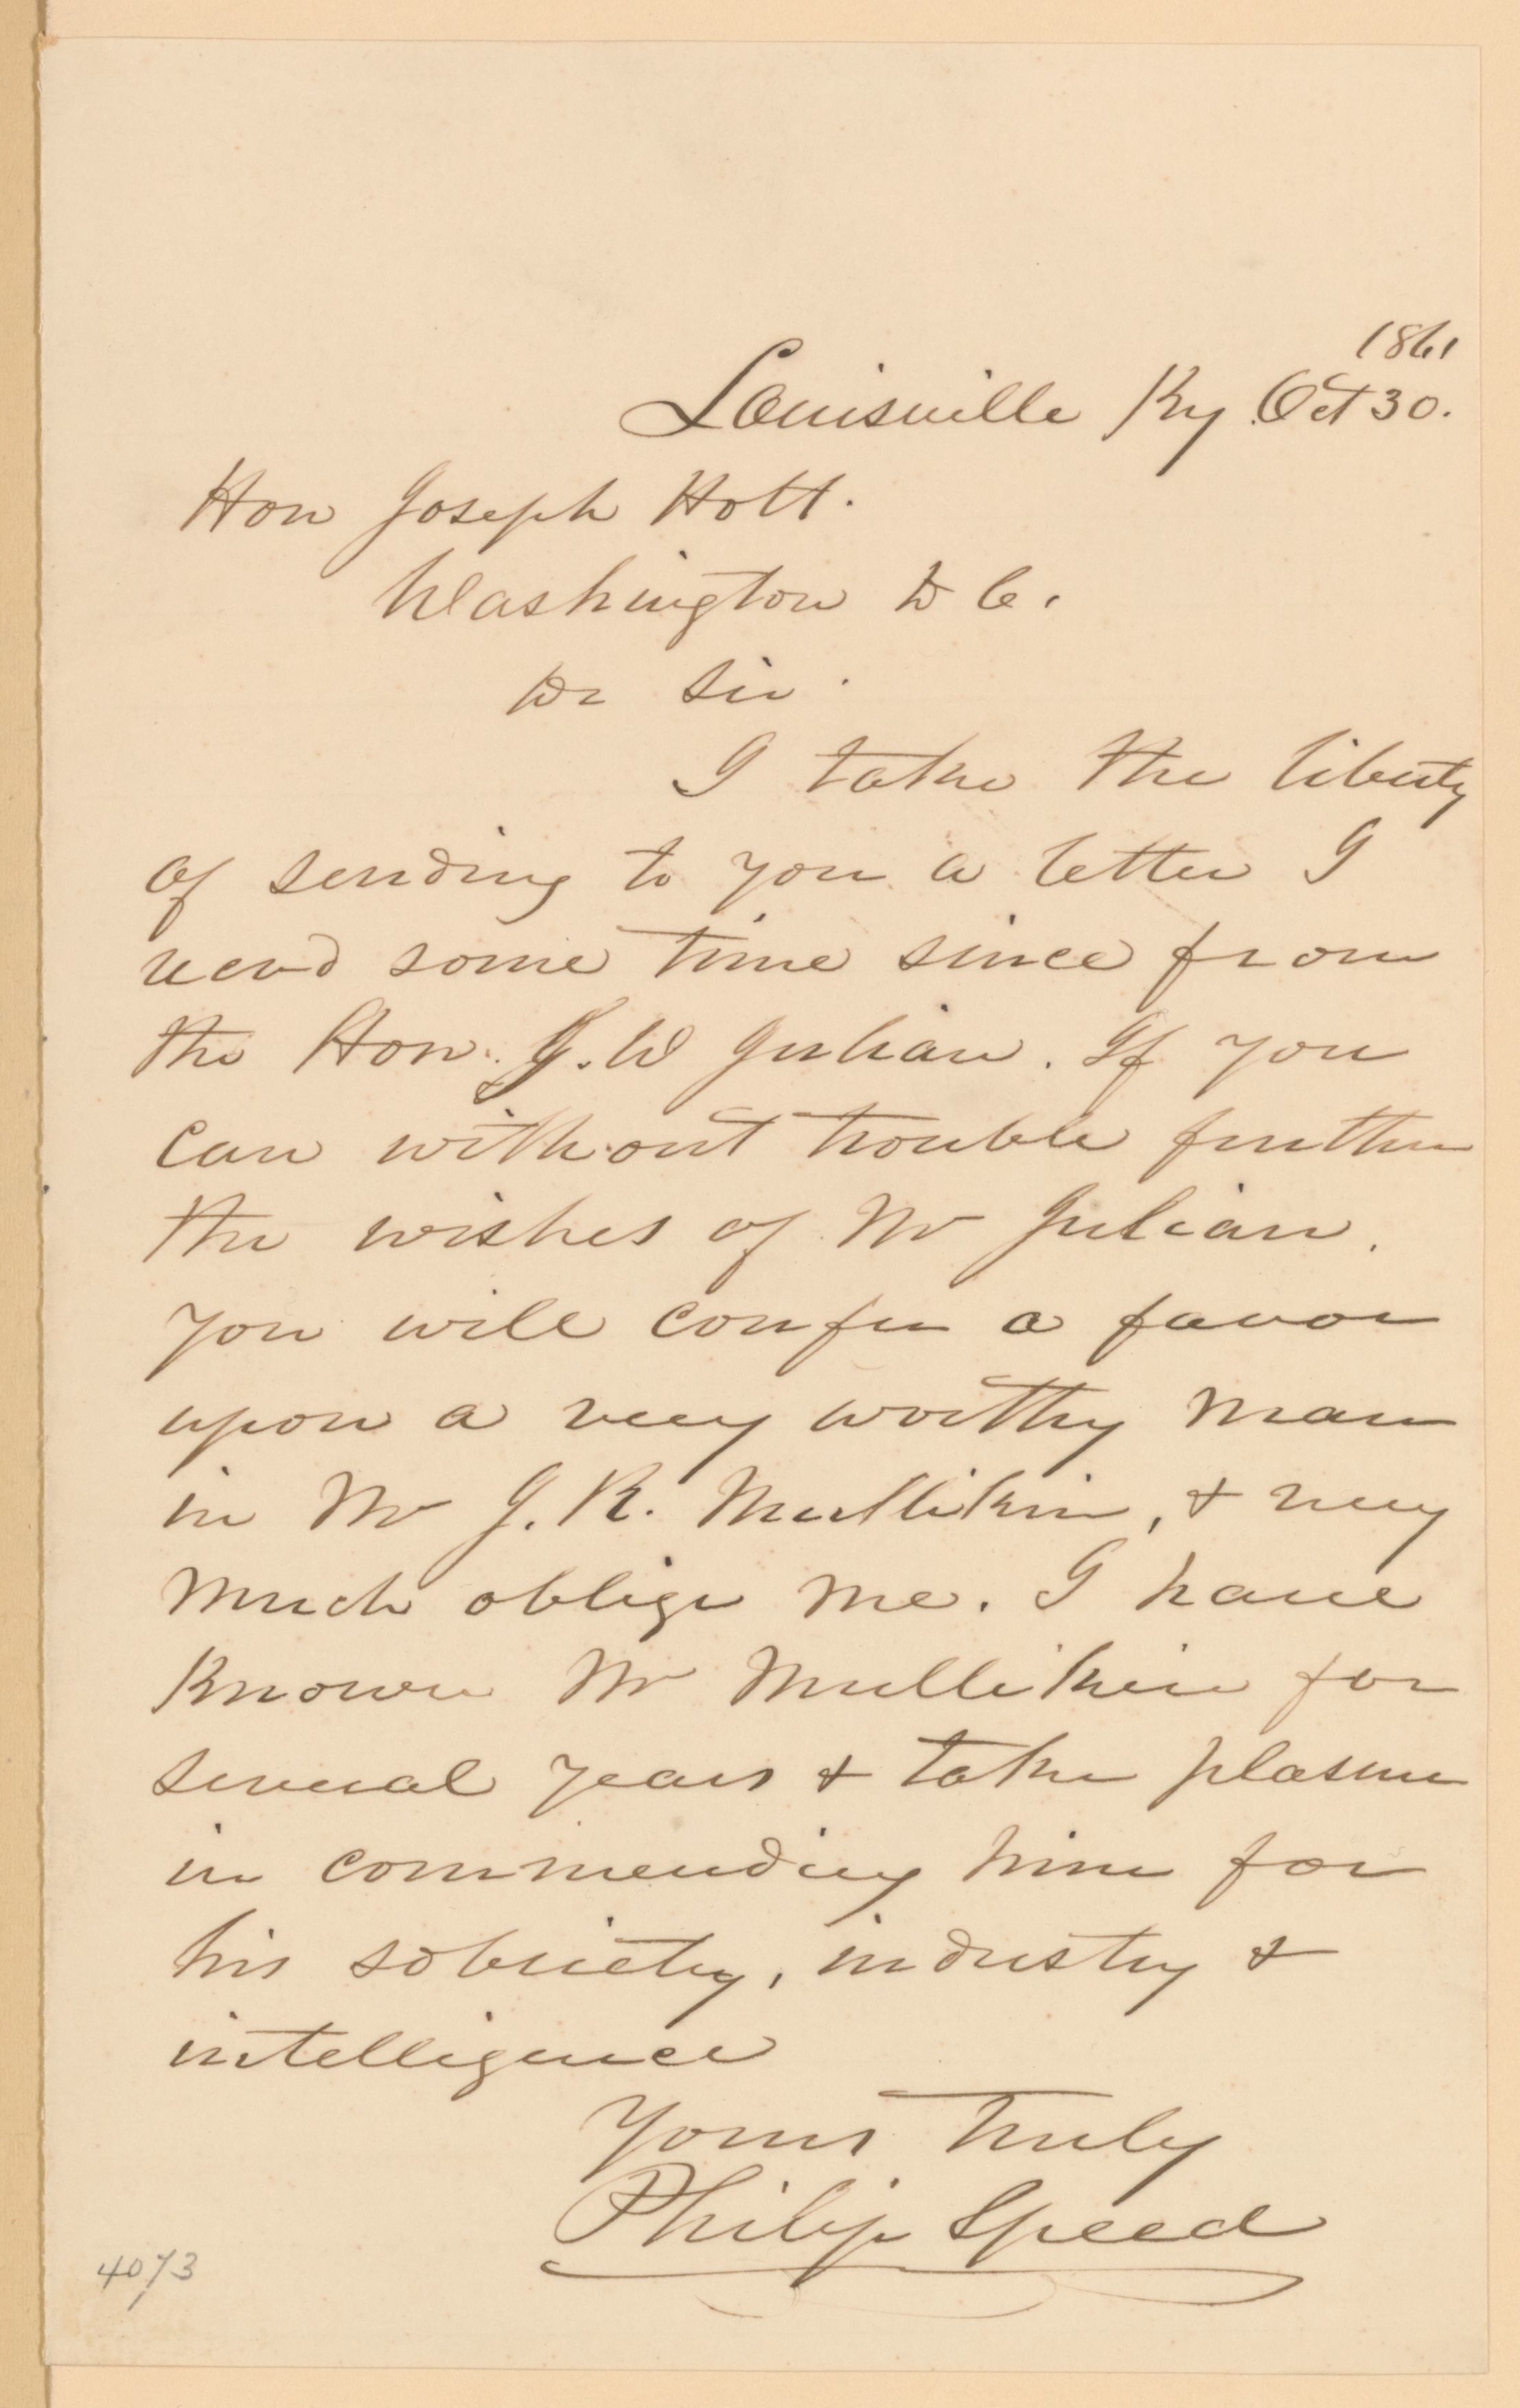 1861
Louisville Ky Oct 30.
Hon Joseph Holt.
Washington D C.
Dr Sir.
I take the liberty
of sending to you a letter I
recvd some time since from
the Hon. G. W Julian. If you
can without trouble further
the wishes of Mr Julian.
you will confer a favor
upon a very worthy man
in Mr J. R. Mullikin, & very
much oblige me. I have
known Mr Mullikin for
several years & take plasure
in commending him for
his sobriety, industry &
intelligence
Yours Truly
Philip Speed
4073